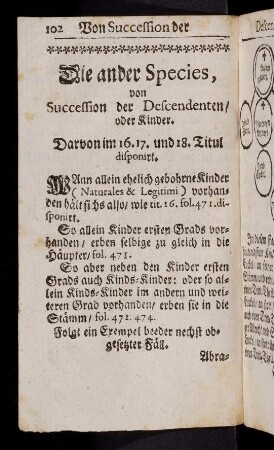 102 Von Succession der
Die ander Species,
von
Succession der Descendenten/
oder Kinder.
Darvon im 16. 17. und 18. Titul
disponirt.
WAnn allein ehelich gebohrne Kinder
( Naturales & Legitimi ) vorhan-
den hält sichs also/ wie tit. 16. fol. 471. di-
sponirt.
So allein Kinder ersten Grads vor-
handen/ erben selbige zu gleich in die
Häupter/ fol. 471.
So aber neben den Kinder ersten
Grads auch Kinds-Kinder: oder so al-
lein Kinds-Kinder im andern und wei-
teren Grad vorhanden/ erben sie in die
Stämm/ fol. 472. 474.
Folgt ein Exempel beeder nechst ob-
gesetzter Fäll.
Abra-
Descen